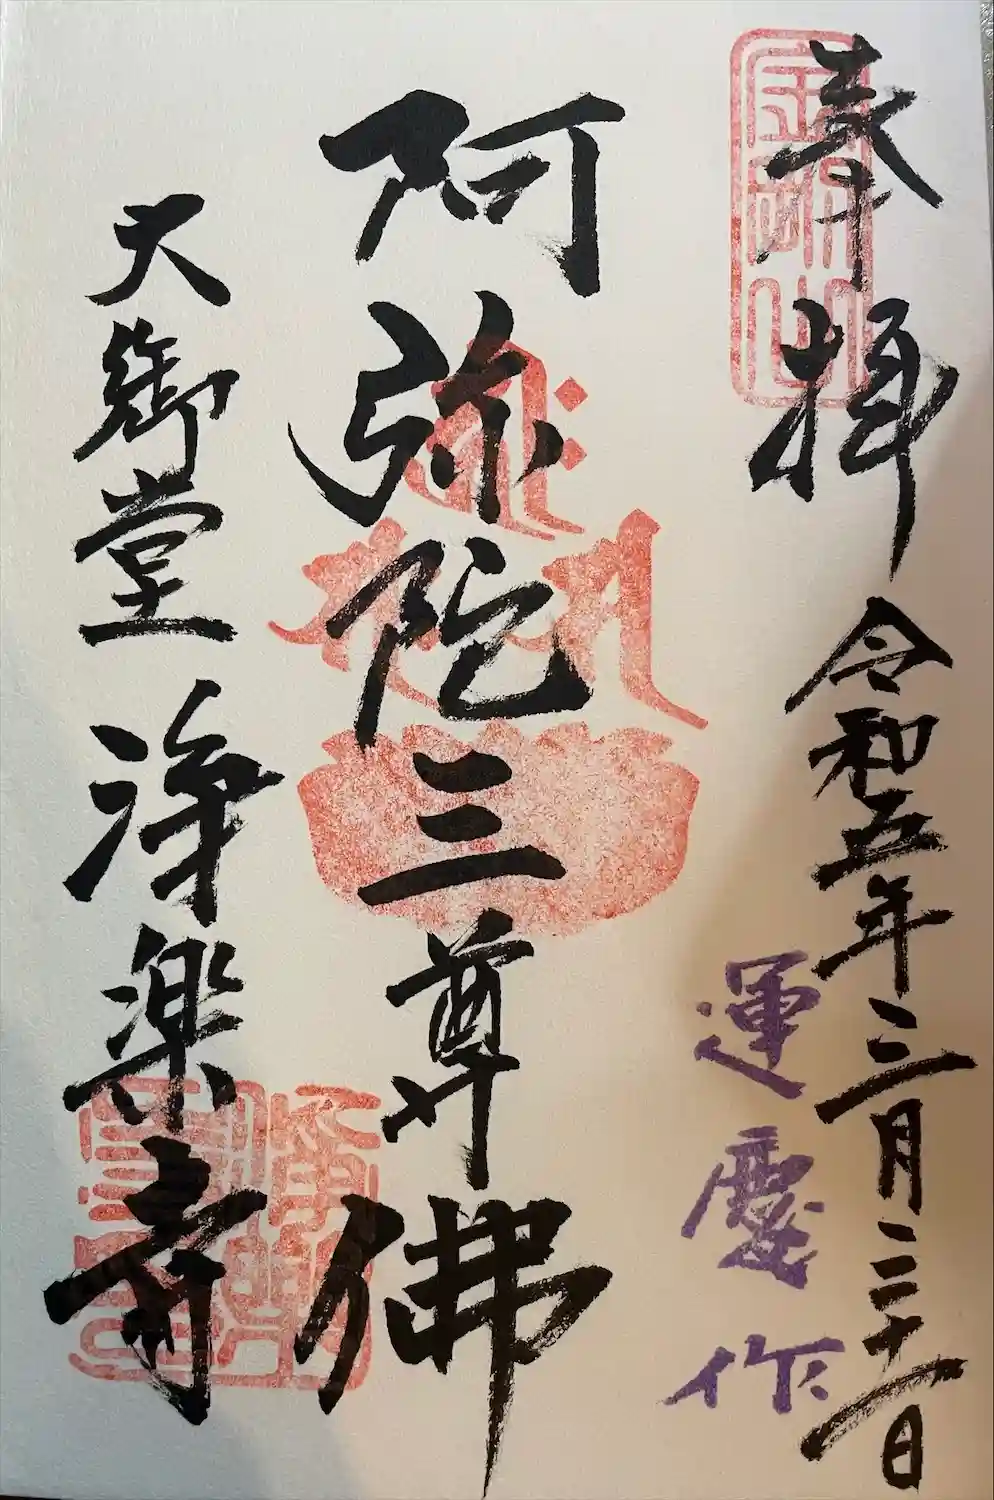 奉拝 令和五年三月三十一日
金剛山
運慶作
阿弥陀三尊佛
大御堂 浄楽寺